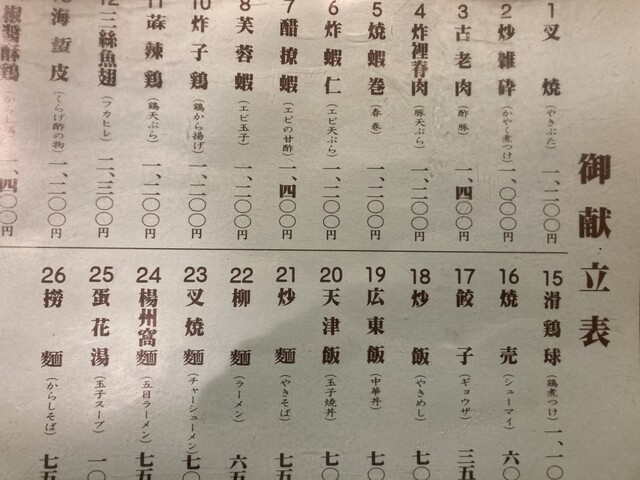 御献立表
1 叉焼 (やきぶた) 一、二〇〇円
2 炒雑砕 (かやく煮つけ) 一、〇〇〇円
3 古老肉 (酢豚) 一、四〇〇円
4 炸裡脊肉 (豚天ぷら) 一、二〇〇円
5 焼蝦巻 (春巻) 一、二〇〇円
6 炸蝦仁 (エビ天ぷら) 一、二〇〇円
7 醋撩蝦 (エビの甘酢) 一、四〇〇円
8 芙蓉蝦 (エビ玉子) 一、二〇〇円
10 炸子鶏 (鶏から揚げ) 一、二〇〇円
11 蒜辣鶏 (鶏天ぷら) 一、二〇〇円
12 三絲魚翅 (フカヒレ) 二、三〇〇円
海蜇皮 (くらげ酢の物) 一、二〇〇円
椒醤酥鶏 一、四〇〇円
15 滑鶏球 (鶏煮つけ) 一、一〇
16 焼売 (シューマイ) 六〇
17 餃子 (ギョウザ) 三五
18 炒飯 (やきめし) 七〇
19 広東飯 (中華丼) 七〇
20 天津飯 (玉子焼丼) 七〇
21 炒麺 (やきそば) 七五
22 柳麺 (ラーメン) 六五
23 叉焼麺 (チャーシューメン) 七〇
24 楊州窩麺 (五目ラーメン) 七五
25 蛋花湯 (玉子スープ) 一〇
26 撈麺 (からしそば) 七五